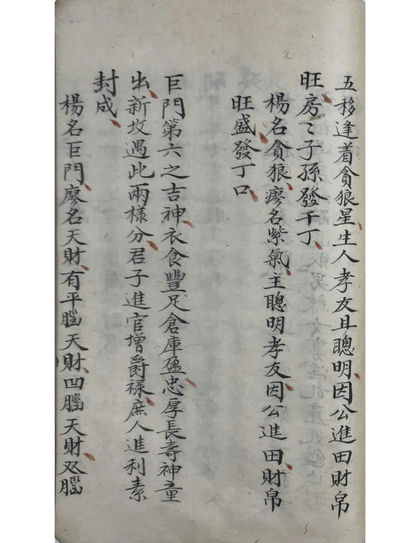 五移逢着貪狼星生人孝友且聰明因公進田財帛
旺房〻子孫發千丁
楊名貪狼廖名紫氣主聰明孝友因公進田財帛
旺盛發丁口
巨門第六之吉神衣食豐足倉庫盈忠厚長壽神童
出新坟遇此兩樣分君子進官增爵禄庶人進利素
封成
楊名巨門廖名天財有平腦天財凹腦天財双腦